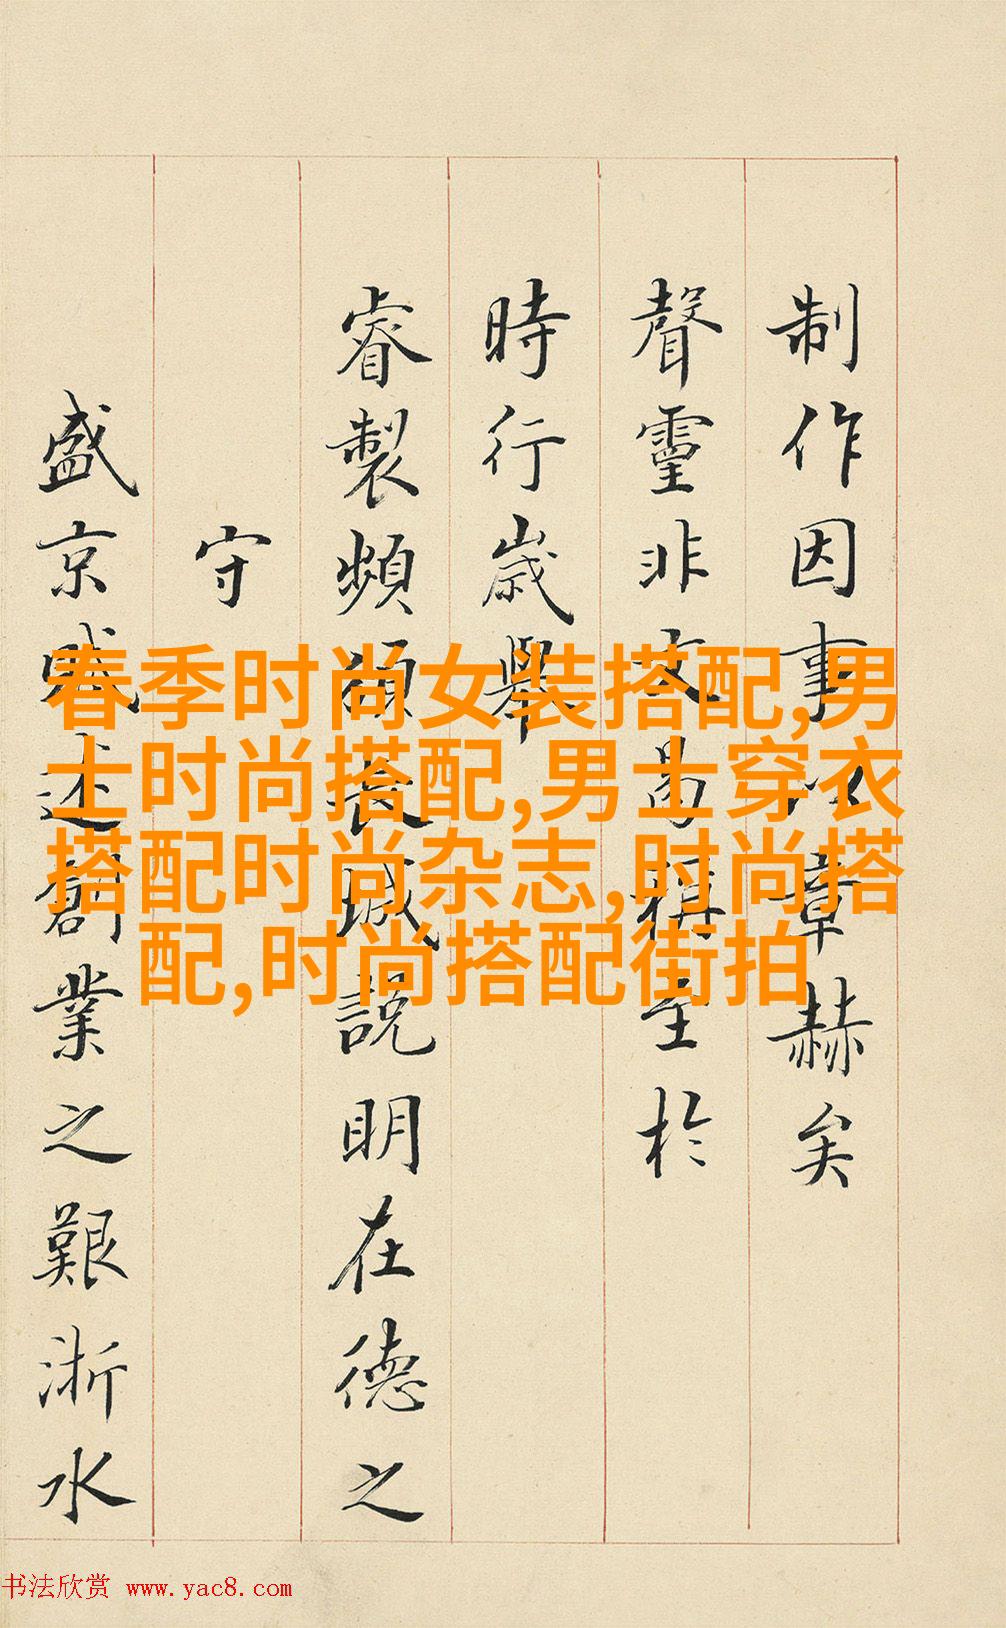 制作因事以章赫矣
聲靈非文曷稱至於
時行歲舉
睿製頻頒長城說明在德之
守
盛京賦述創業之艱浙水
春季时尚女装搭配,男
士时尚搭配,男士穿衣
搭配时尚杂志,时尚搭
配,时尚搭配街拍
书法欣赏 www.yac8.com